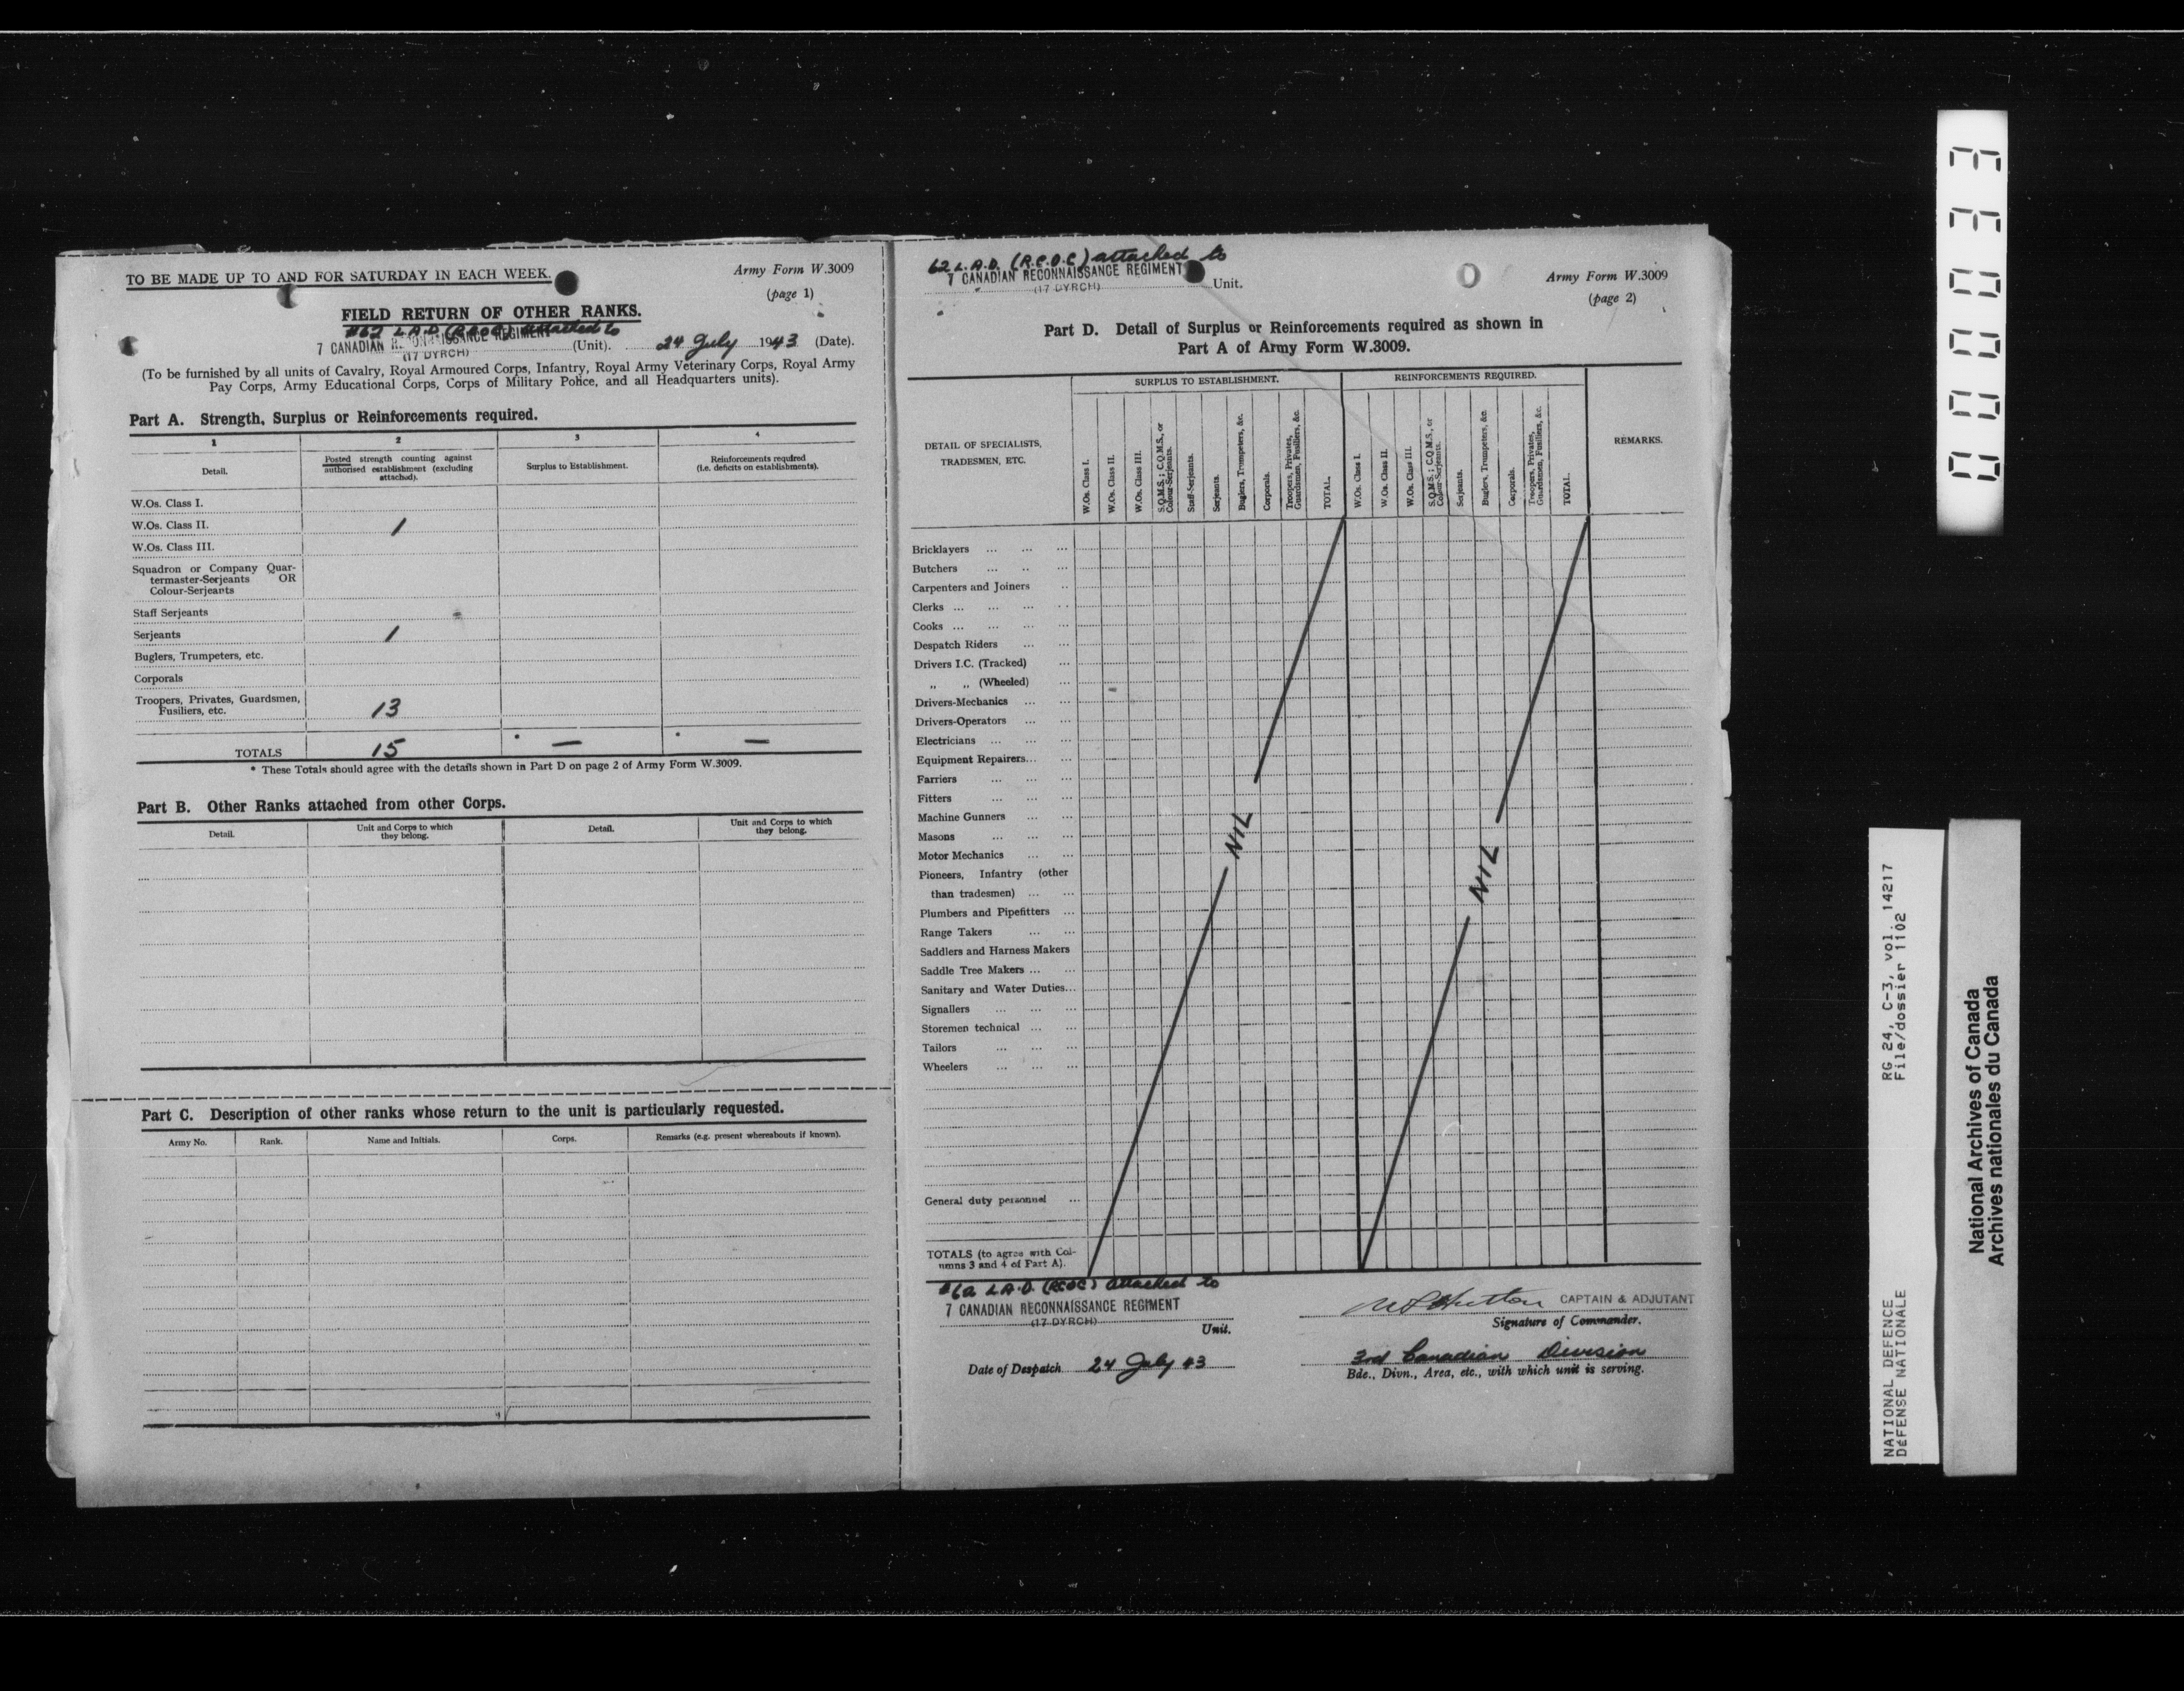 TO BE MADE UP TO AND FOR SATURDAY IN EACH WEEK.
Army Form W.3009
(page 1)
FIELD RETURN OF OTHER RANKS.
#62 L.A.D. (R.C.O.C.) attached to
7 CANADIAN RECONNAISSANCE REGIMENT (Unit). 24 July 1943 (Date).
(17 DYRCH)
(To be furnished by all units of Cavalry, Royal Armoured Corps, Infantry, Royal Army Veterinary Corps, Royal Army
Pay Corps, Army Educational Corps, Corps of Military Police, and all Headquarters units).
Part A. Strength, Surplus or Reinforcements required.
1 2 3 4
Detail.
Posted strength counting against
authorised establishment (excluding
attached).
Surplus to Establishment.
Reinforcements required
(i.e. deficits on establishments).
W.Os. Class I.
W.Os. Class II. 1
W.Os. Class III.
Squadron or Company Quar-
termaster-Serjeants OR
Colour-Serjeants
Staff Serjeants
Serjeants 1
Buglers, Trumpeters, etc.
Corporals
Troopers, Privates, Guardsmen,
Fusiliers, etc. 13
TOTALS 15 * — * —
* These Totals should agree with the details shown in Part D on page 2 of Army Form W.3009.
Part B. Other Ranks attached from other Corps.
Detail.
Unit and Corps to which
they belong.
Detail.
Unit and Corps to which
they belong.
Part C. Description of other ranks whose return to the unit is particularly requested.
Army No. Rank. Name and Initials. Corps. Remarks (e.g. present whereabouts if known).
62 L.A.D. (R.C.O.C) attached to
7 CANADIAN RECONNAISSANCE REGIMENT Unit.
(17 DYRCH)
Army Form W.3009
(page 2)
Part D. Detail of Surplus or Reinforcements required as shown in
Part A of Army Form W.3009.
DETAIL OF SPECIALISTS,
TRADESMEN, ETC.
SURPLUS TO ESTABLISHMENT.
W.Os. Class I.
W.Os. Class II.
W.Os. Class III.
S.Q.M.S.; C.Q.M.S., or
Colour-Serjeants.
Staff-Serjeants.
Serjeants.
Buglers, Trumpeters, &c.
Corporals.
Troopers, Privates,
Guardsmen, Fusiliers, &c.
TOTAL.
REINFORCEMENTS REQUIRED.
W.Os. Class I.
W.Os. Class II.
W.Os. Class III.
S.Q.M.S.; C.Q.M.S., or
Colour-Serjeants.
Serjeants.
Buglers, Trumpeters, &c.
Corporals.
Troopers, Privates,
Guardsmen, Fusiliers, &c.
TOTAL.
REMARKS.
Bricklayers ... ... ...
Butchers ... .. ...
Carpenters and Joiners ..
Clerks ... ... ... ..
Cooks ... ... ... ...
Despatch Riders ... ...
Drivers I.C. (Tracked) ...
„ „ (Wheeled) ...
Drivers-Mechanics ... ...
Drivers-Operators ... ...
Electricians ... ... ...
Equipment Repairers... ...
Farriers ... ... ...
Fitters ... ... ...
Machine Gunners ... ...
Masons ... ... ...
Motor Mechanics ... ...
Pioneers, Infantry (other
than tradesmen) ... ...
Plumbers and Pipefitters ...
Range Takers ... ...
Saddlers and Harness Makers
Saddle Tree Makers ... ...
Sanitary and Water Duties...
Signallers ... ... ...
Storemen technical ... ...
Tailors ... ... ...
Wheelers ... ... ...
General duty personnel ...
NIL
NIL
TOTALS (to agree with Col-
umns 3 and 4 of Part A).
#62 L.A.D. (RCOC) attached to
7 CANADIAN RECONNAISSANCE REGIMENT
(17 DYRCH)
Unit.
CAPTAIN & ADJUTANT
Signature of Commander.
Date of Despatch 24 July 43
3rd Canadian Division
Bde., Divn., Area, etc., with which unit is serving.
000033
NATIONAL DEFENCE RG 24, C-3, vol. 14217
DÉFENSE NATIONALE File/dossier 1102
National Archives of Canada
Archives nationales du Canada